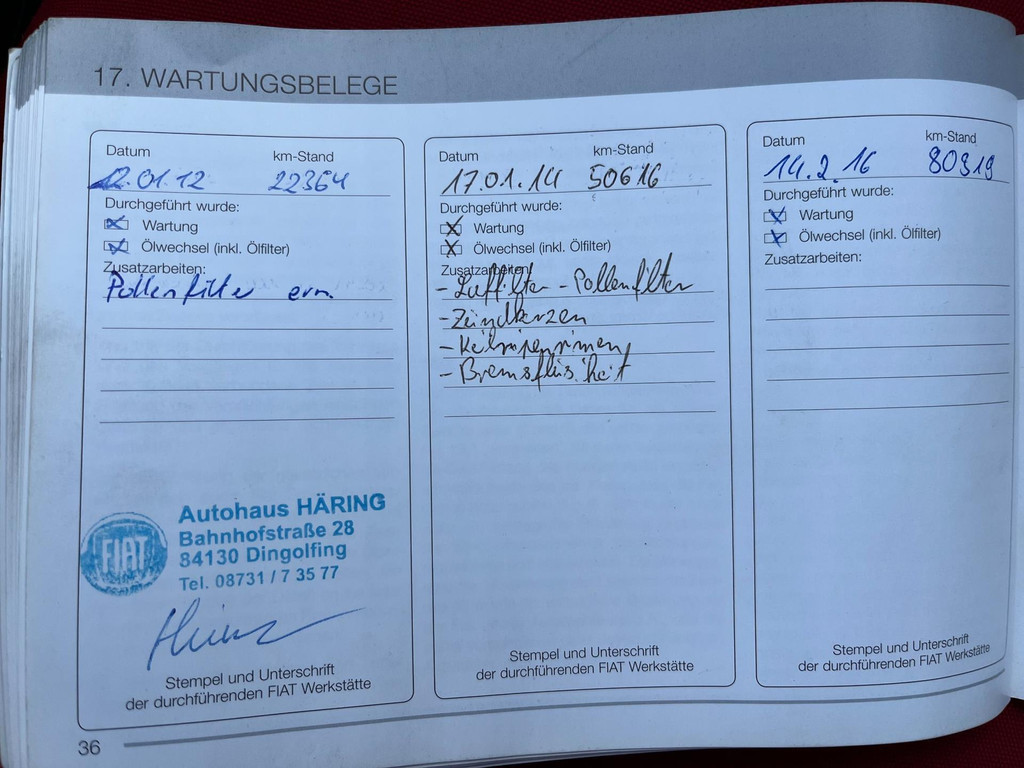 17. WARTUNGSBELEGE
Datum km-Stand
12.01.12 22364
Durchgeführt wurde:
Wartung
Ölwechsel (inkl. Ölfilter)
Zusatzarbeiten:
Pollenfilter ern.
Autohaus HÄRING
Bahnhofstraße 28
84130 Dingolfing
Tel. 08731 / 7 35 77
FIAT
Stempel und Unterschrift
der durchführenden FIAT Werkstätte
Datum km-Stand
17.01.14 50616
Durchgeführt wurde:
Wartung
Ölwechsel (inkl. Ölfilter)
Zusatzarbeiten:
- Luffilter - Pollenfilter
- Zündkerzen
- Keilrippenrimen
- Bremsflüsiheit
Stempel und Unterschrift
der durchführenden FIAT Werkstätte
Datum km-Stand
14.2.16 80319
Durchgeführt wurde:
Wartung
Ölwechsel (inkl. Ölfilter)
Zusatzarbeiten:
Stempel und Unterschrift
der durchführenden FIAT Werkstätte
36